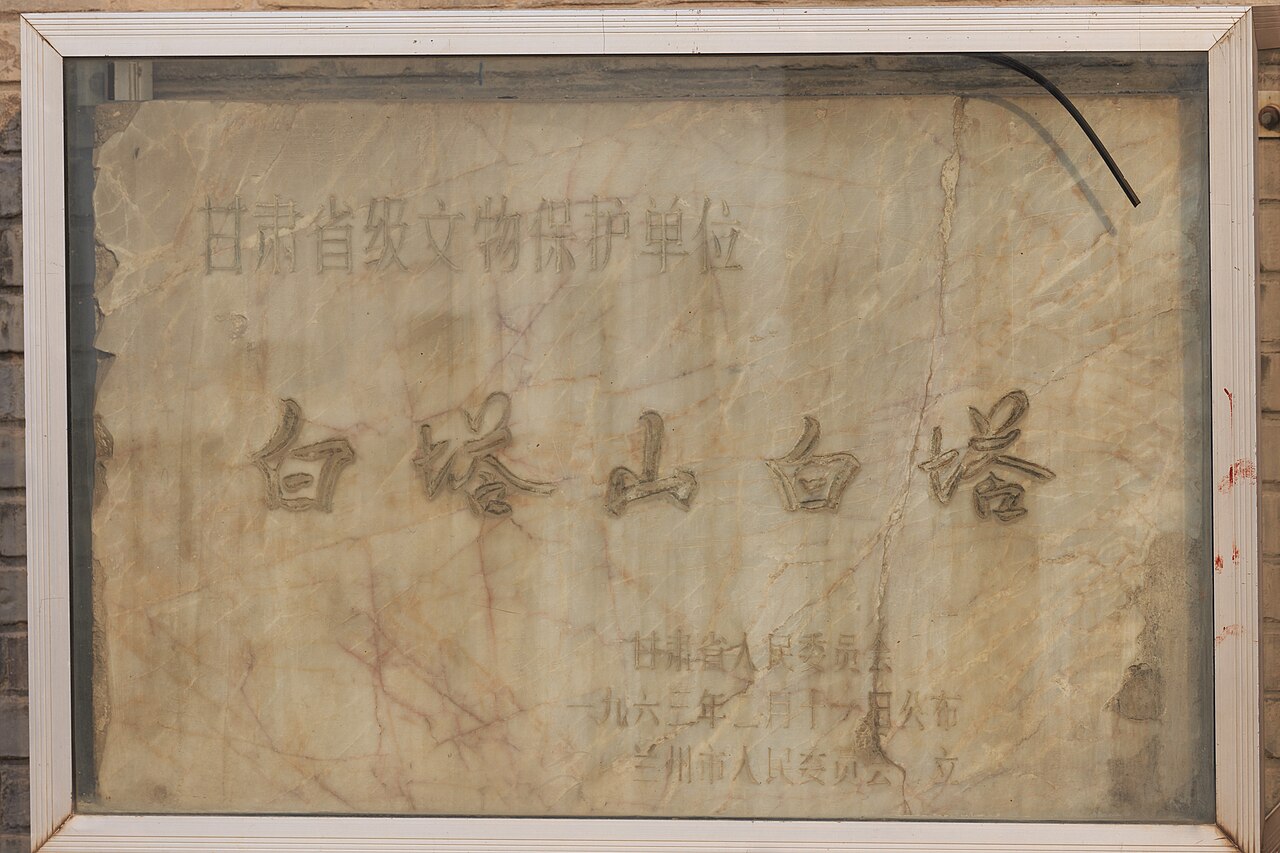 甘肃省级文物保护单位
白塔山白塔
甘肃省人民委员会
一九六三年二月十一日公布
兰州市人民委员会 立